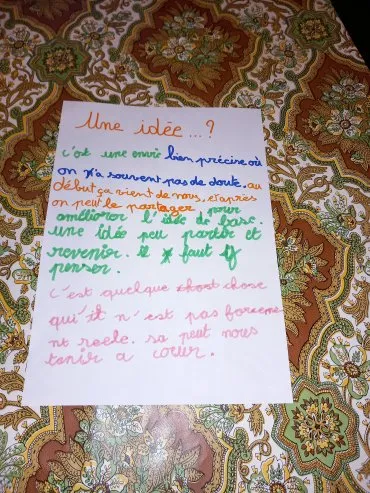 Une idée...?
c'est une envi bien précise où
on n'a souvent pas de doute. au
début ça vient de nous, et après
on peut le partager pour
améliorer l'idée de base.
une idée peu partir et
revenir. il faut y
penser.
c'est quelque chose
qu'il n'est pas forceme
nt reele. sa peut nous
tenir a cœur.